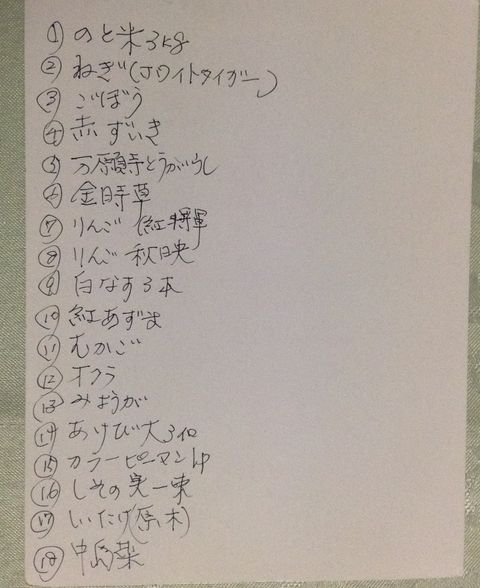 ① のと米3kg
② ねぎ(ホワイトタイガー)
③ ごぼう
④ 赤ずいき
⑤ 万願寺とうがらし
⑥ 金時草
⑦ りんご 紅将軍
⑧ りんご 秋映
⑨ 白なす3本
⑩ 紅あずま
⑪ むかご
⑫ オクラ
⑬ みょうが
⑭ あけび大3個
⑮ カラーピーマン1p
⑯ しその実一束
⑰ しいたけ(原木)
⑱ 中島菜